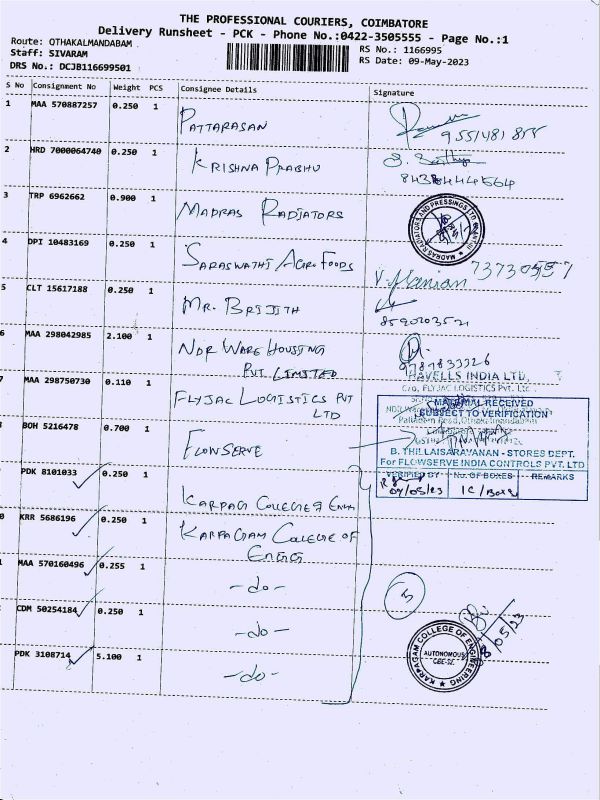 THE PROFESSIONAL COURIERS, COIMBATORE
Delivery Runsheet - PCK - Phone No.:0422-3505555 - Page No.:1
Route: OTHAKALMANDABAM
Staff: SIVARAM
DRS No.: DCJB116699501
RS No.: 1166995
RS Date: 09-May-2023
S No Consignment No Weight PCS Consignee Details Signature
1 MAA 570887257 0.250 1 PATTARASAN
2 HRD 7000064740 0.250 1 KRISHNA PRABHU
8438444564
3 TRP 6962662 0.900 1 MADRAS RADIATORS
MADRAS RADIATORS AND PRESSINGS
4 DPI 10483169 0.250 1 SARASWATHI AGRO FOODS
5 CLT 15617188 0.250 1 MR. BRIJITH
8590203521
6 MAA 298042985 2.100 1 NDR WARE HOUSING
PVT. LIMITED
9787833326
HAVELLS INDIA LTD,
C/o, FLYJAC LOGISTICS PVT. LTD
7 MAA 298750730 0.110 1 FLYJAC LOGISTICS PVT
LTD
MATERIAL RECEIVED
SUBJECT TO VERIFICATION
8 BOH 5216478 0.700 1 FLOWSERVE
B. THILLAISARAVANAN - STORES DEPT.
For FLOWSERVE INDIA CONTROLS PVT. LTD
VERIFIED BY No. OF BOXES REMARKS
09/05/23
PDK 8101033 0.250 1 KARPAGAM COLLEGE OF ENGG
0 KRR 5686196 0.250 1 KARPAGAM COLLEGE OF
ENGG
MAA 570160496 0.255 1 -do-
5
CDM 50254184 0.250 1 -do-
PDK 3108714 5.100 1 -do-
KARPAGAM COLLEGE OF ENGINEERING
AUTONOMOUS
CBE-32.